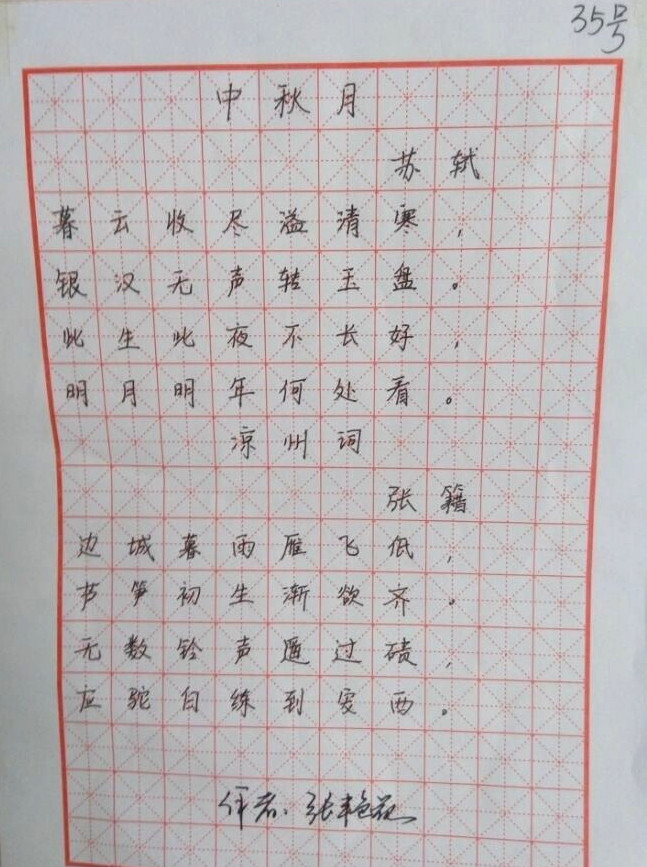 35号
中秋月
苏轼
暮云收尽溢清寒，
银汉无声转玉盘。
此生此夜不长好，
明月明年何处看。
凉州词
张籍
边城暮雨雁飞低，
芦笋初生渐欲齐。
无数铃声遥过碛，
应驼白练到安西。
作者：张艳